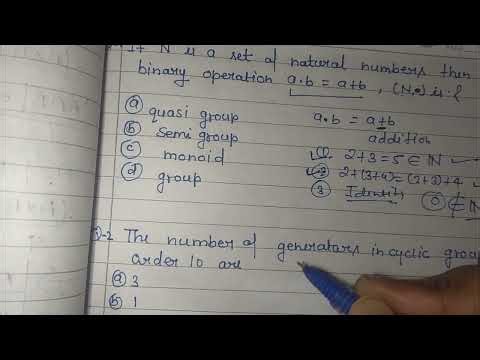 If N is a set of natural numbers then
binary operation a.b = a+b, (N,•) is :-
ⓐ quasi group
ⓑ Semi group
ⓒ monoid
ⓓ group
a.b = a+b
addition
① 2+3=5 ∈ N
② 2+(3+4)=(2+3)+4
③ Identity 0 ∉ N
-2 The number of generators in cyclic
order 10 are
ⓐ 3
ⓑ 1